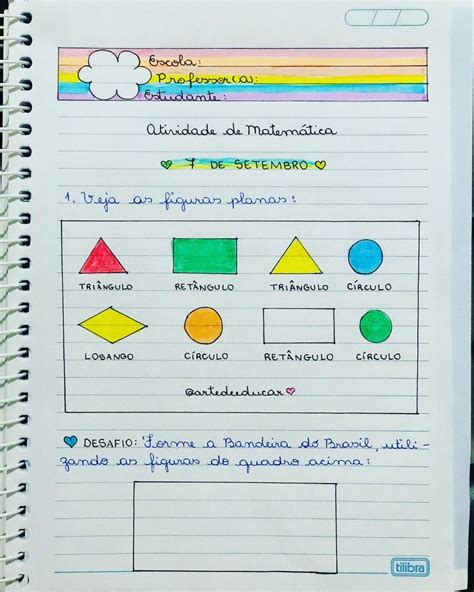 Escola:
Professor(a):
Estudante:
Atividade de Matemática
7 DE SETEMBRO
1. Veja as figuras planas:
TRIÂNGULO RETÂNGULO TRIÂNGULO CÍRCULO
LOSANGO CÍRCULO RETÂNGULO CÍRCULO
@artedeeducar
DESAFIO: Forme a Bandeira do Brasil, utili-
zando as figuras do quadro acima:
tilibra